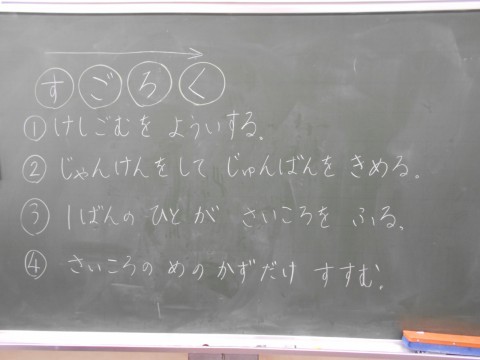 すごろく
① けしごむを よういする。
② じゃんけんをして じゅんばんを きめる。
③ 1ばんの ひと が さいころを ふる。
④ さいころの めの かずだけ すすむ。